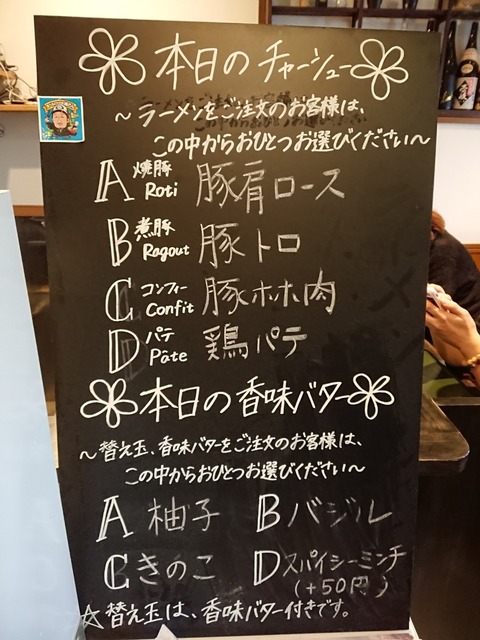 本日のチャーシュー
～ラーメンをご注文のお客様は、
この中からおひとつお選びください～
A 焼豚 Roti 豚肩ロース
B 煮豚 Ragout 豚トロ
C コンフィー Confit 豚ホホ肉
D パテ Pâte 鶏パテ
本日の香味バター
～替え玉、香味バターをご注文のお客様は、
この中からおひとつお選びください～
A 柚子 B バジル
C きのこ D スパイシーミンチ
(+50円)
☆替え玉は、香味バター付きです。